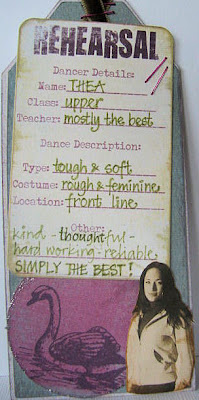 REHEARSAL
Dancer Details:
Name: THEA
Class: upper
Teacher: mostly the best
Dance Description:
Type: tough & soft
Costume: rough & feminine
Location: front line
Other:
kind - thoughtful -
hard working - reliable
SIMPLY THE BEST!